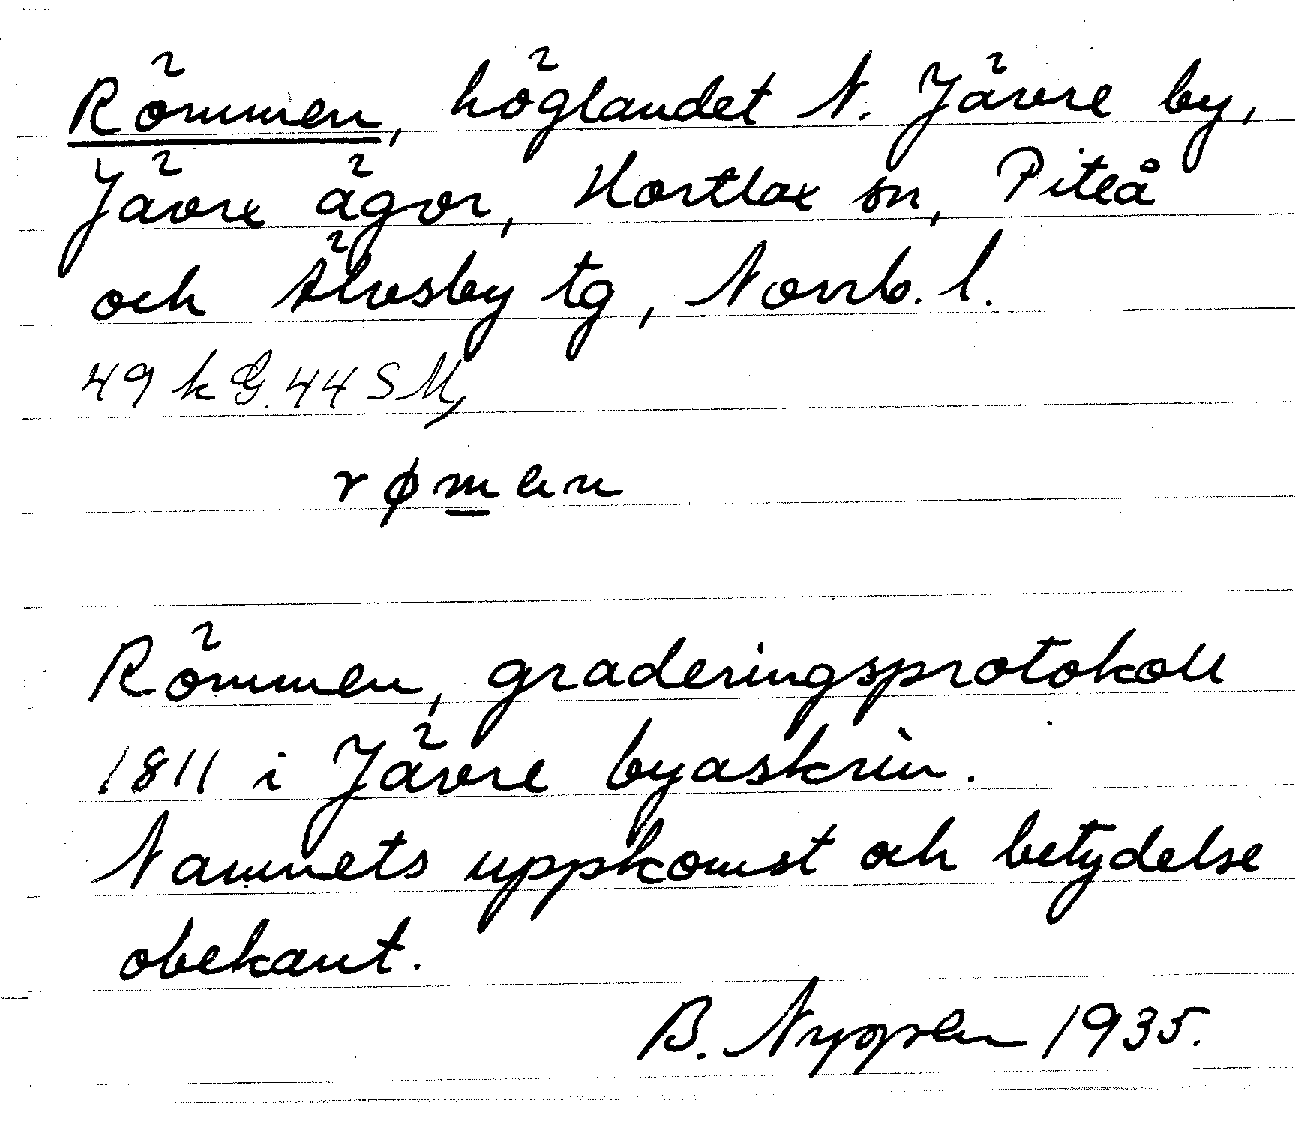 Römmen, höglandet N. Jävre by,
Jävre ägor, Hortlax sn, Piteå
och Älvsby tg, Norrb. l.
49 k G. 44 S M,
røm̲en
Römmen, graderingsprotokoll
1811 i Jävre byaskrin.
Namnets uppkomst och betydelse
obekant.
B. Nygren 1935.